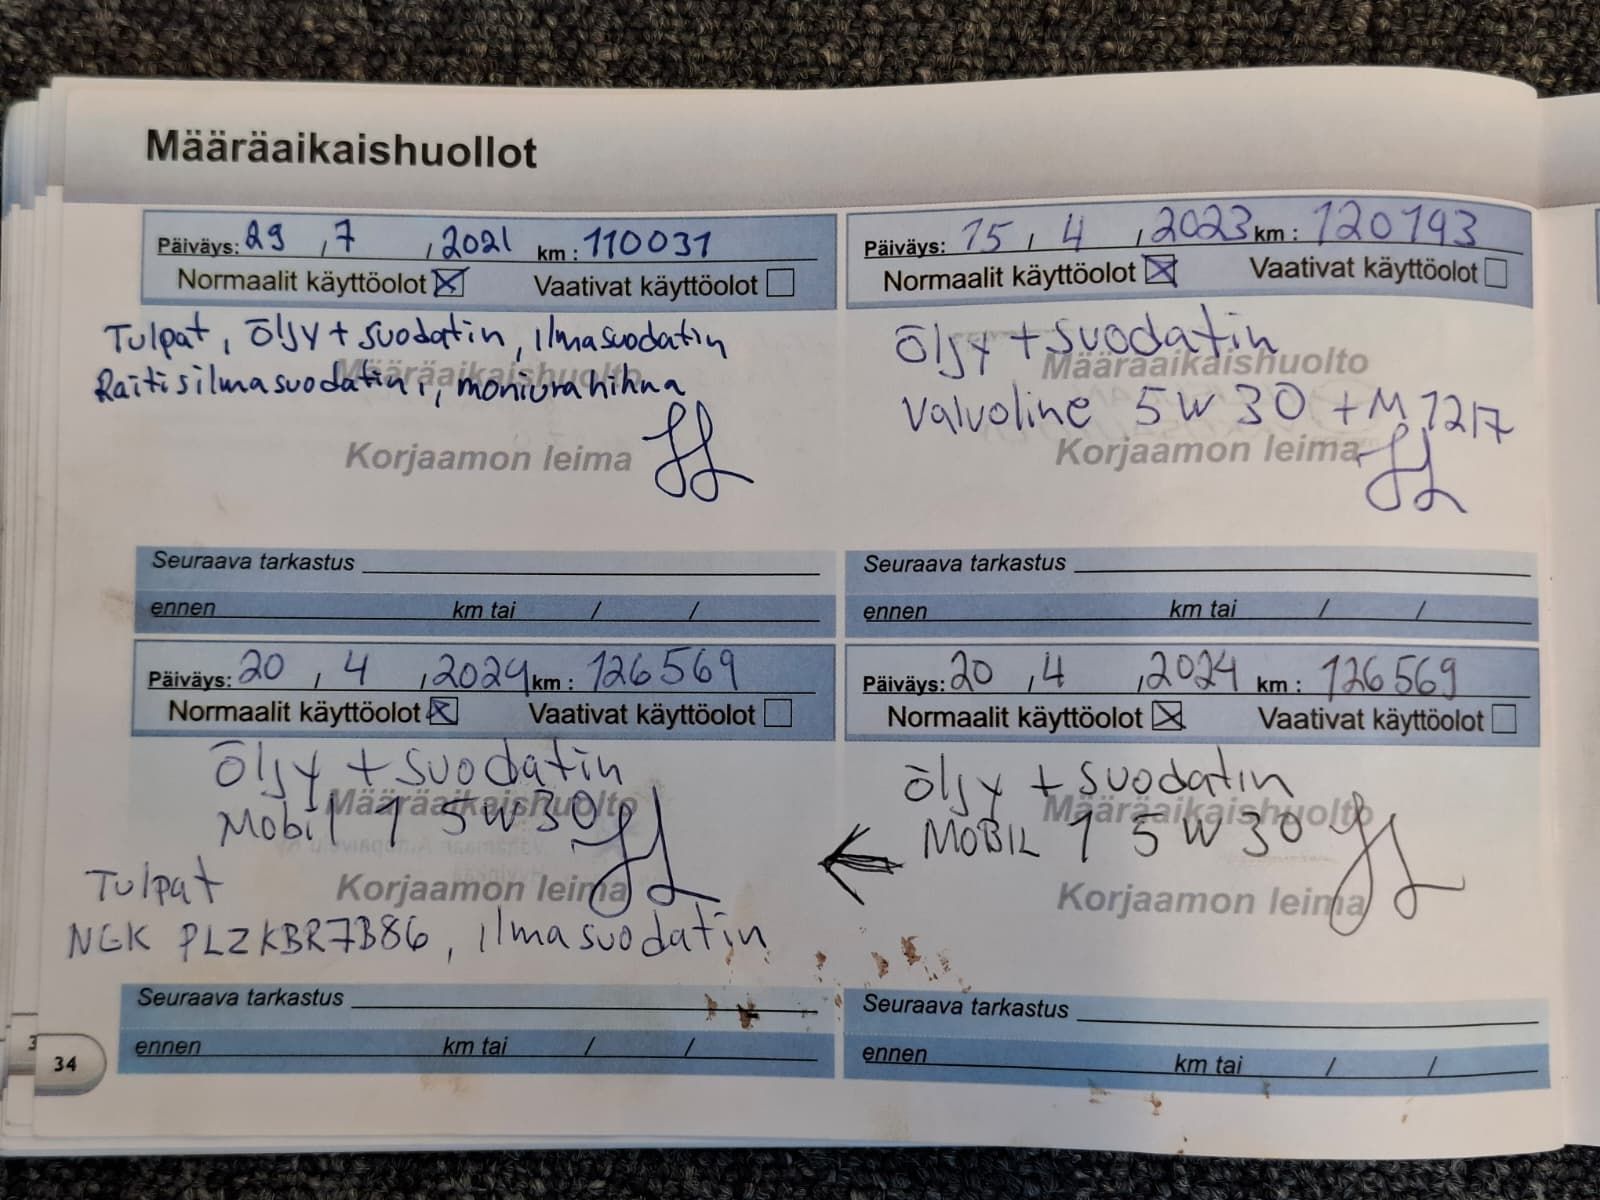 Määräaikaishuollot
Päiväys: 29 , 7 , 2021 km : 110031
Normaalit käyttöolot Vaativat käyttöolot
Tulpat, öljy + suodatin, ilmasuodatin
Määräaikaishuolto
Raitisilmasuodatin, moniurahihna
Korjaamon leima
Seuraava tarkastus
ennen km tai / /
Päiväys: 15 , 4 , 2023 km : 120193
Normaalit käyttöolot Vaativat käyttöolot
öljy + suodatin
Määräaikaishuolto
Valvoline 5W30 + M 1217
Korjaamon leima
Seuraava tarkastus
ennen km tai / /
Päiväys: 20 , 4 , 2024 km : 126569
Normaalit käyttöolot Vaativat käyttöolot
öljy + suodatin
Määräaikaishuolto
Mobil 1 5W30
Tulpat
Korjaamon leima
NGK PLZKBR7B8G, ilmasuodatin
Seuraava tarkastus
ennen km tai / /
Päiväys: 20 , 4 , 2024 km : 126569
Normaalit käyttöolot Vaativat käyttöolot
öljy + suodatin
Määräaikaishuolto
MOBIL 1 5W30
Korjaamon leima
Seuraava tarkastus
ennen km tai / /
34